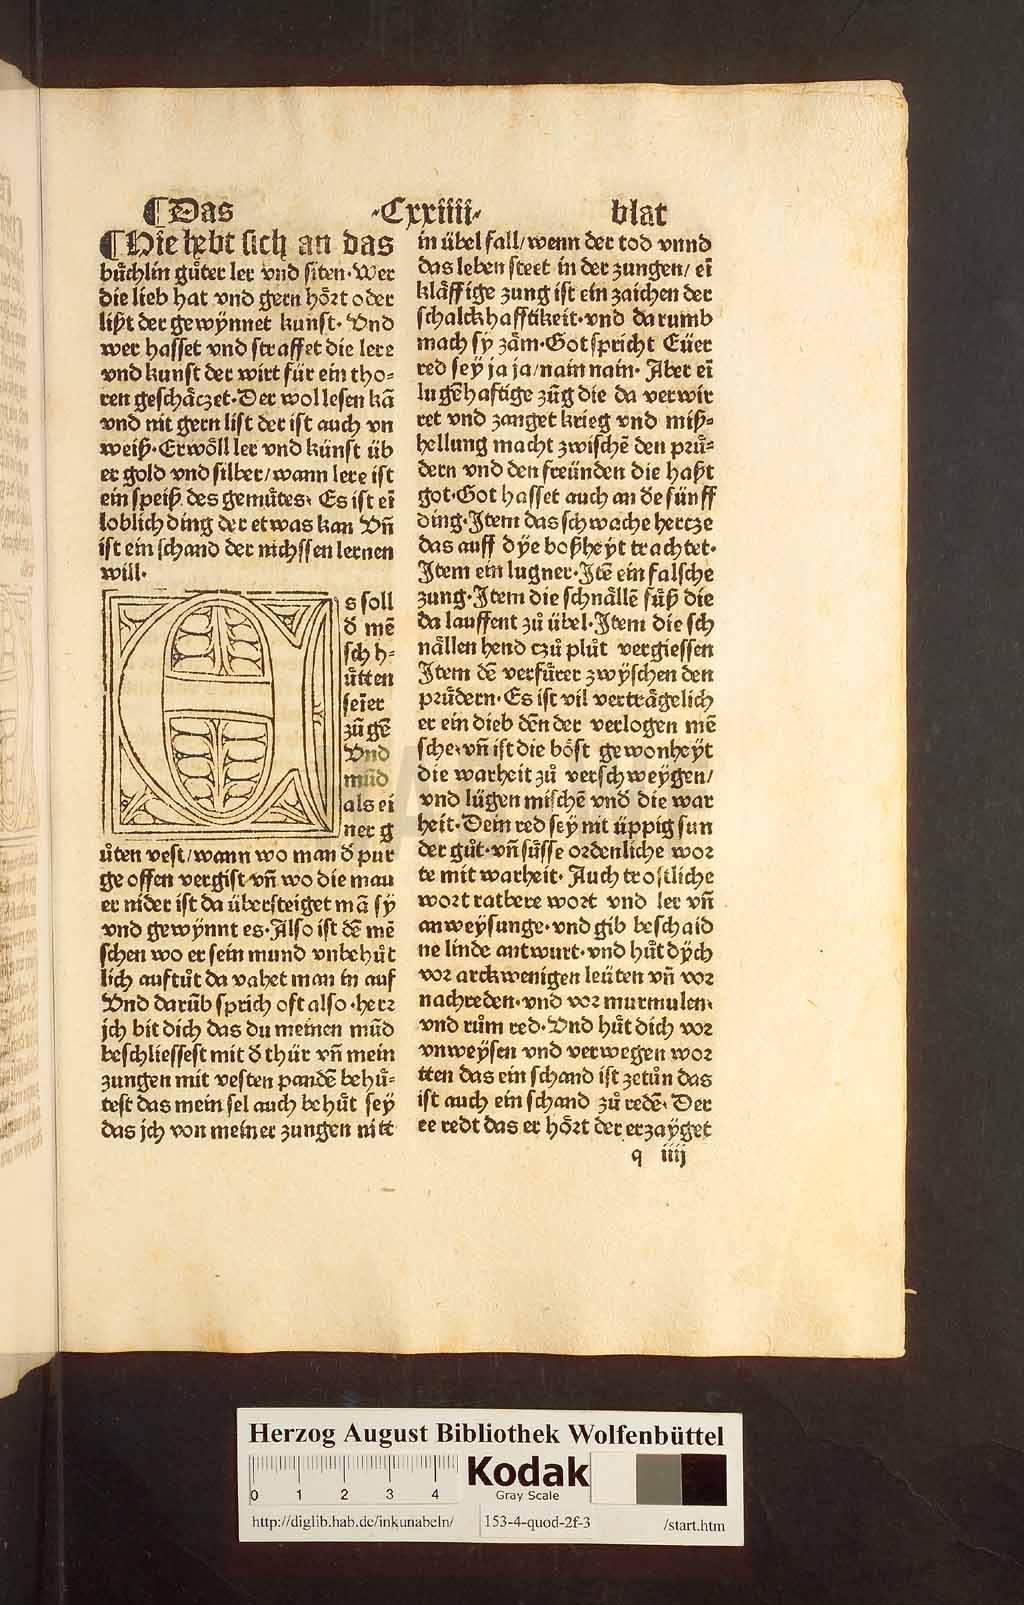 ¶Das ·Cxxiiii· blat
¶Hie hebt sich an das
buͤchlin guͦter ler vnd siten·Wer
die lieb hat vnd gern hoͤrt oder
lißt der gewÿnnet kunst· Vnd
wer hasset vnd straffet die lere
vnd kunst der wirt für ein tho-
ren geschaͤczet·Der wol lesen kā
vnd nit gern list der ist auch vn
weiß·Erwoͤll ler vnd künst üb
er gold vnd silber/wann lere ist
ein speiß des gemuͤtes· Es ist eī
loblich ding der etwas kan Vn̄
ist ein schand der nichssen lernen
will·
Es soll
d̕ mē
sch h-
uͤtten
seīer
zūgē
Vnd
mūd
als ei
ner g
uͦten vest/wann wo man d̕ pur
ge offen vergist vn̄ wo die mau
er nider ist da übersteiget mā sÿ
vnd gewÿnnt es·Also ist dē mē
schen wo er sein mund vnbehuͤt
lich auftuͦt da vahet man in auf
Vnd darūb sprich oft also·herr
jch bit dich das du meinen mūd
beschliessest mit d̕ thür vn̄ mein
zungen mit vesten pandē behuͤ-
test das mein sel auch behuͤt seÿ
das jch von meiner zungen nitt
in übel fall/wenn der tod vnnd
das leben steet in der zungen/ eī
klaͤffige zung ist ein zaichen der
schalckhafftikeit·vnd darumb
mach sÿ zaͤm·Got spricht Eüer
red seÿ ja ja/nain nain· Aber eī
lugēhaftige zūg die da verwir
ret vnd zanget krieg vnd miß-
hellung macht zwischē den pruͤ-
dern vnd den freünden die haßt
got·Got hasset auch an dē fünff
ding·Item das schwache hercze
das auff dÿe boßheÿt trachtet·
Item ein lugner·Itē ein falsche
zung·Item die schnaͤllē fuͤß die
da lauffent zuͦ übel·Item die sch
naͤllen hend czuͦ pluͦt vergiessen
Item dē verfuͤrer zwÿschen den
pruͤdern·Es ist vil vertraͤgelich
er ein dieb dēn der verlogen mē
sche·vn̄ ist die boͤst gewonheÿt
die warheit zuͦ verschweÿgen/
vnd lügen mischē vnd̕ die war
heit·Dein red seÿ nit üppig sun
der guͦt·vn̄ suͤsse ordenliche wor
te mit warheit· Auch trostliche
wort ratbere wort vnd ler vn̄
anweÿsunge·vnd gib beschaid
ne linde antwurt·vnd huͤt dÿch
vor arckwenigen leüten vn̄ vor
nachreden·vnd vor murmulen·
vnd ruͦm red·Vnd huͤt dich vor
vnweÿsen vnd verwegen wor
tten das ein schand ist zetuͦn das
ist auch ein schand zuͦ redē· Der
ee redt das er hoͤrt der erzaÿget
q iiij
Herzog August Bibliothek Wolfenbüttel
0 1 2 3 4
Kodak
Gray Scale
http://diglib.hab.de/inkunabeln/ 153-4-quod-2f-3 /start.htm